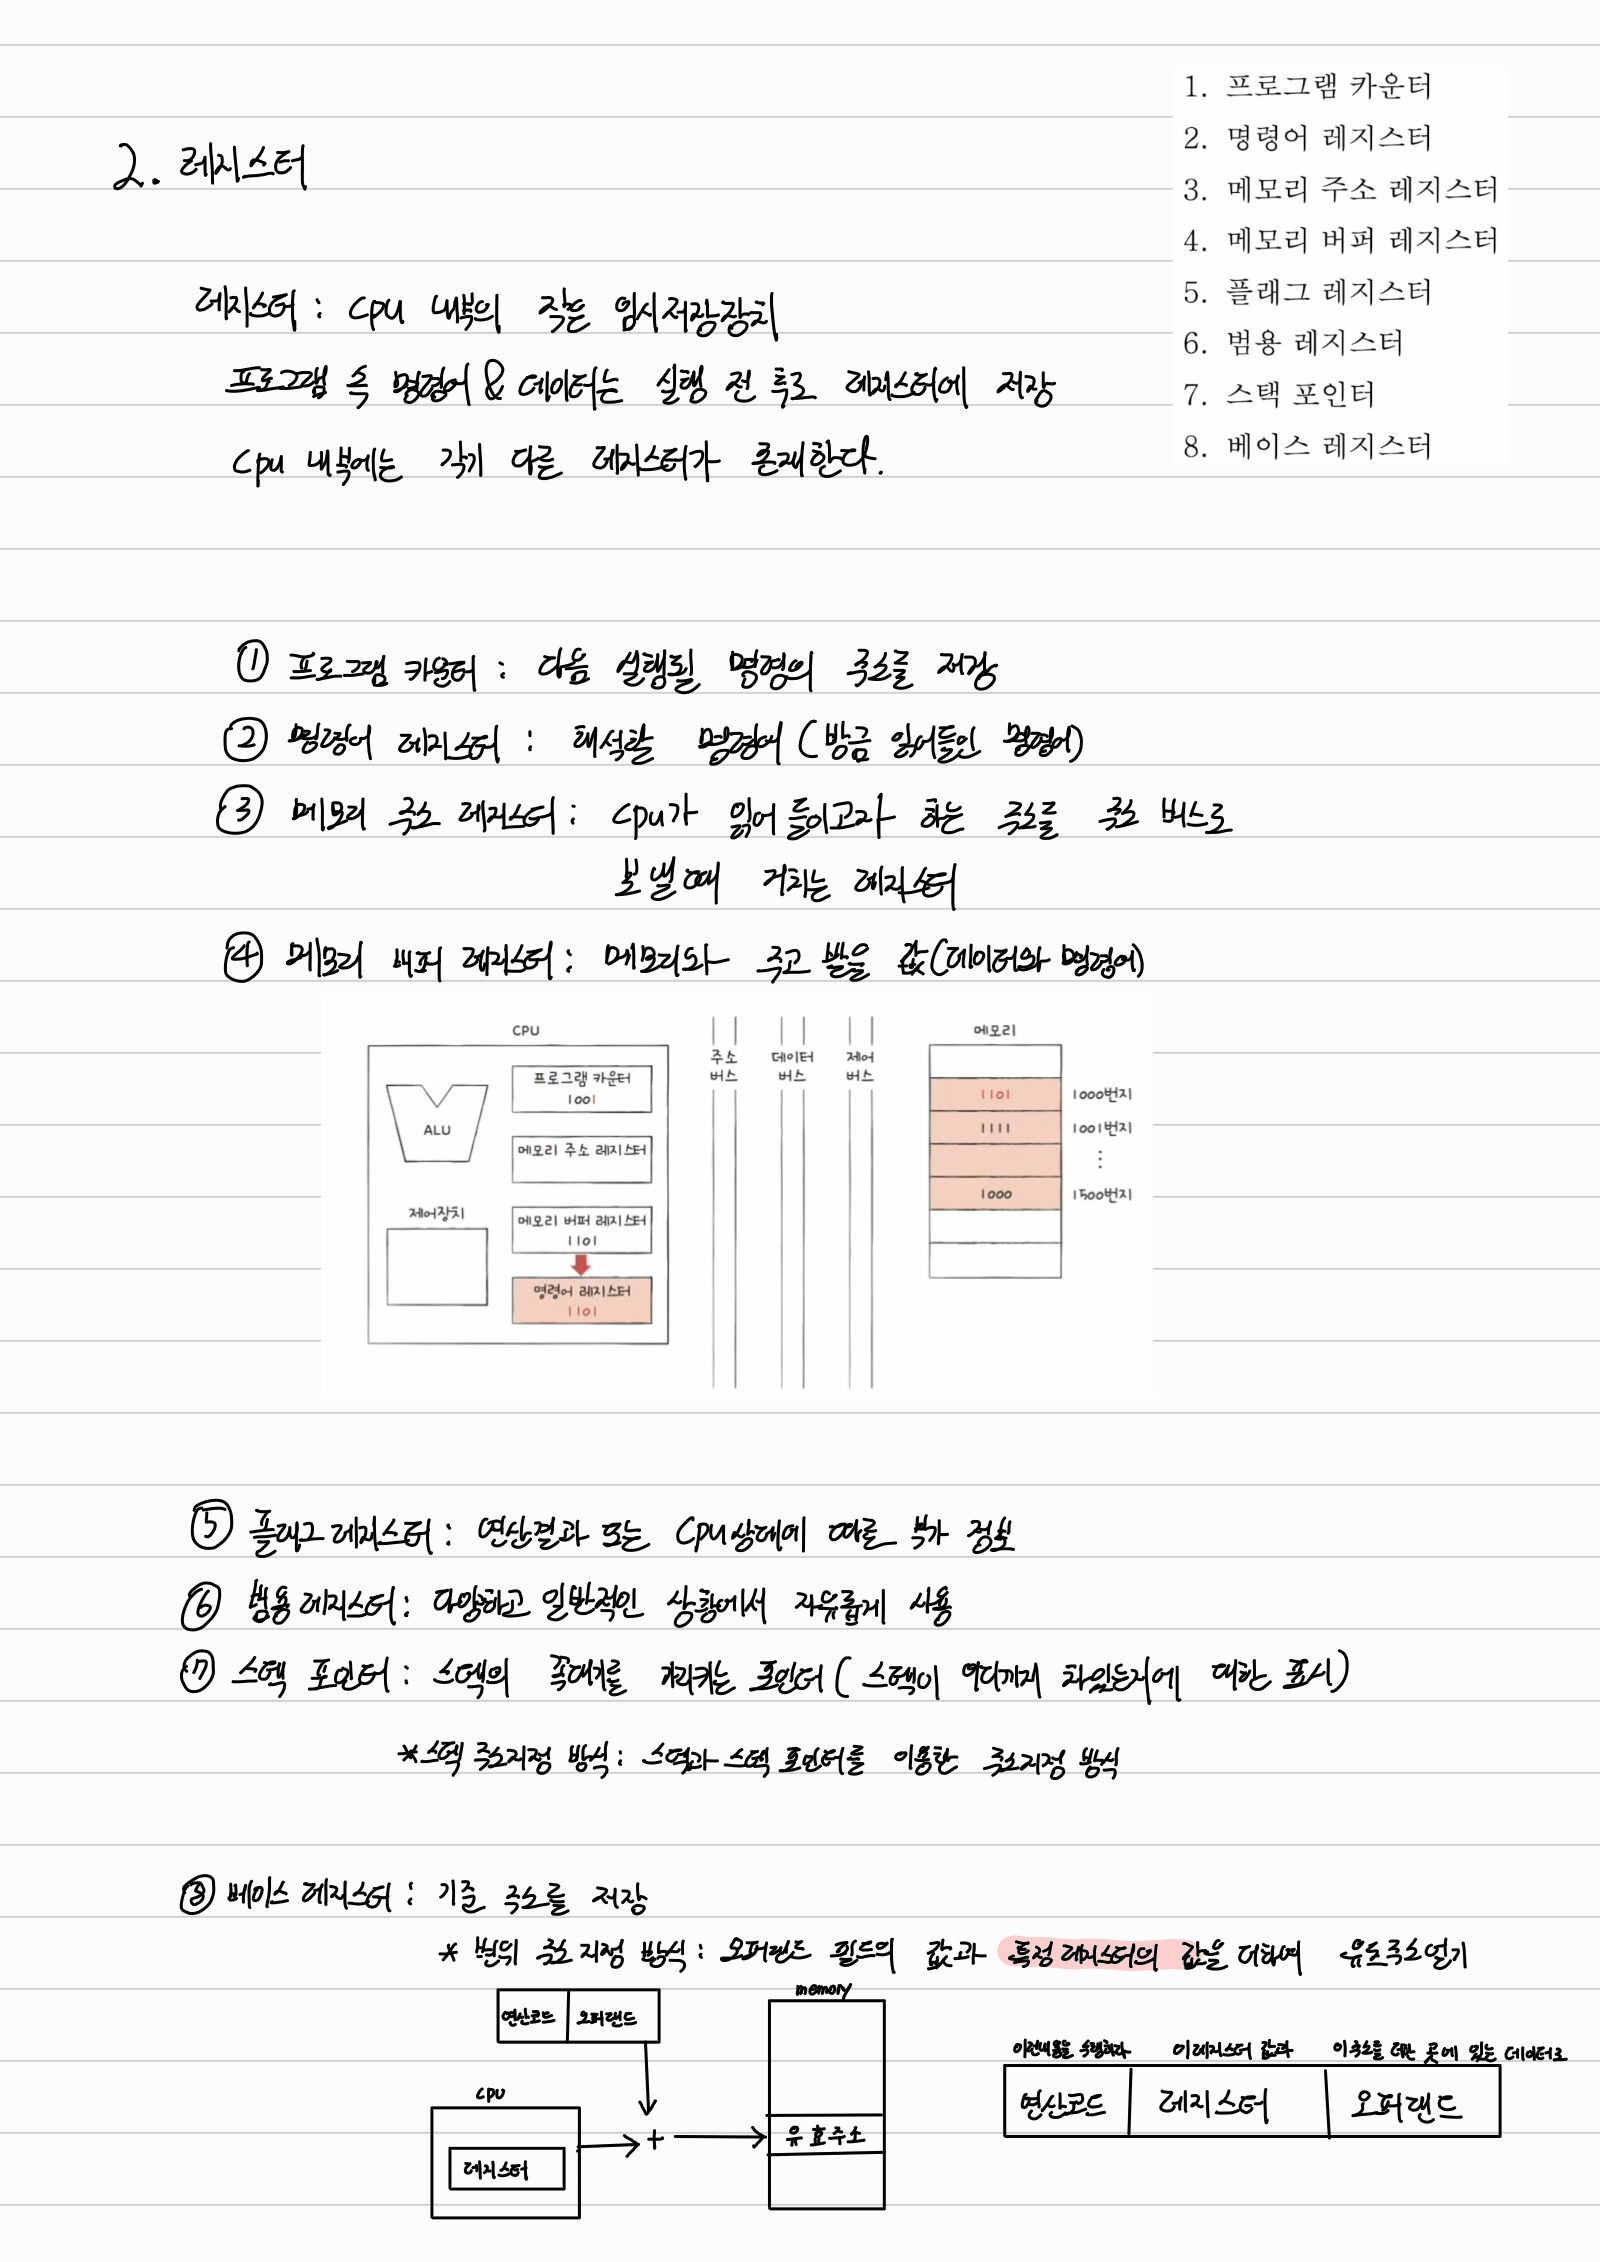 2. 레지스터
1. 프로그램 카운터
2. 명령어 레지스터
3. 메모리 주소 레지스터
4. 메모리 버퍼 레지스터
5. 플래그 레지스터
6. 범용 레지스터
7. 스택 포인터
8. 베이스 레지스터
레지스터 : cpu 내부의 작은 임시저장장치
프로그램 속 명령어 & 데이터는 실행 전 후로 레지스터에 저장
cpu 내부에는 각기 다른 레지스터가 존재한다.
① 프로그램 카운터 : 다음 실행될 명령의 주소를 저장
② 명령어 레지스터 : 해석할 명령어 (방금 읽어들인 명령어)
③ 메모리 주소 레지스터 : cpu가 읽어 들이고자 하는 주소를 주소 버스로
보낼때 거치는 레지스터
④ 메모리 버퍼 레지스터 : 메모리와 주고 받을 값(데이터와 명령어)
CPU
ALU
제어장치
프로그램 카운터
1001
메모리 주소 레지스터
메모리 버퍼 레지스터
1101
명령어 레지스터
1101
주소
버스
데이터
버스
제어
버스
메모리
1101 1000번지
1111 1001번지
⋮
1000 1500번지
⑤ 플래그 레지스터 : 연산결과 또는 cpu상태에 따른 부가 정보
⑥ 범용 레지스터 : 다양하고 일반적인 상황에서 자유롭게 사용
⑦ 스텍 포인터 : 스텍의 꼭대기를 가리키는 포인터 ( 스텍이 어디까지 차있는지에 대한 표시)
*스텍 주소지정 방식 : 스텍과 스텍 포인터를 이용한 주소지정 방식
⑧ 베이스 레지스터 : 기준 주소를 저장
* 변위 주소 지정 방식 : 오퍼랜드 필드의 값과 특정 레지스터의 값을 더하여 유효주소얻기
연산코드 오퍼랜드
cpu
레지스터
+
memory
유효주소
이 레지스터 값과
이 주소를 더한 곳에 있는 데이터로
연산코드 레지스터 오퍼랜드